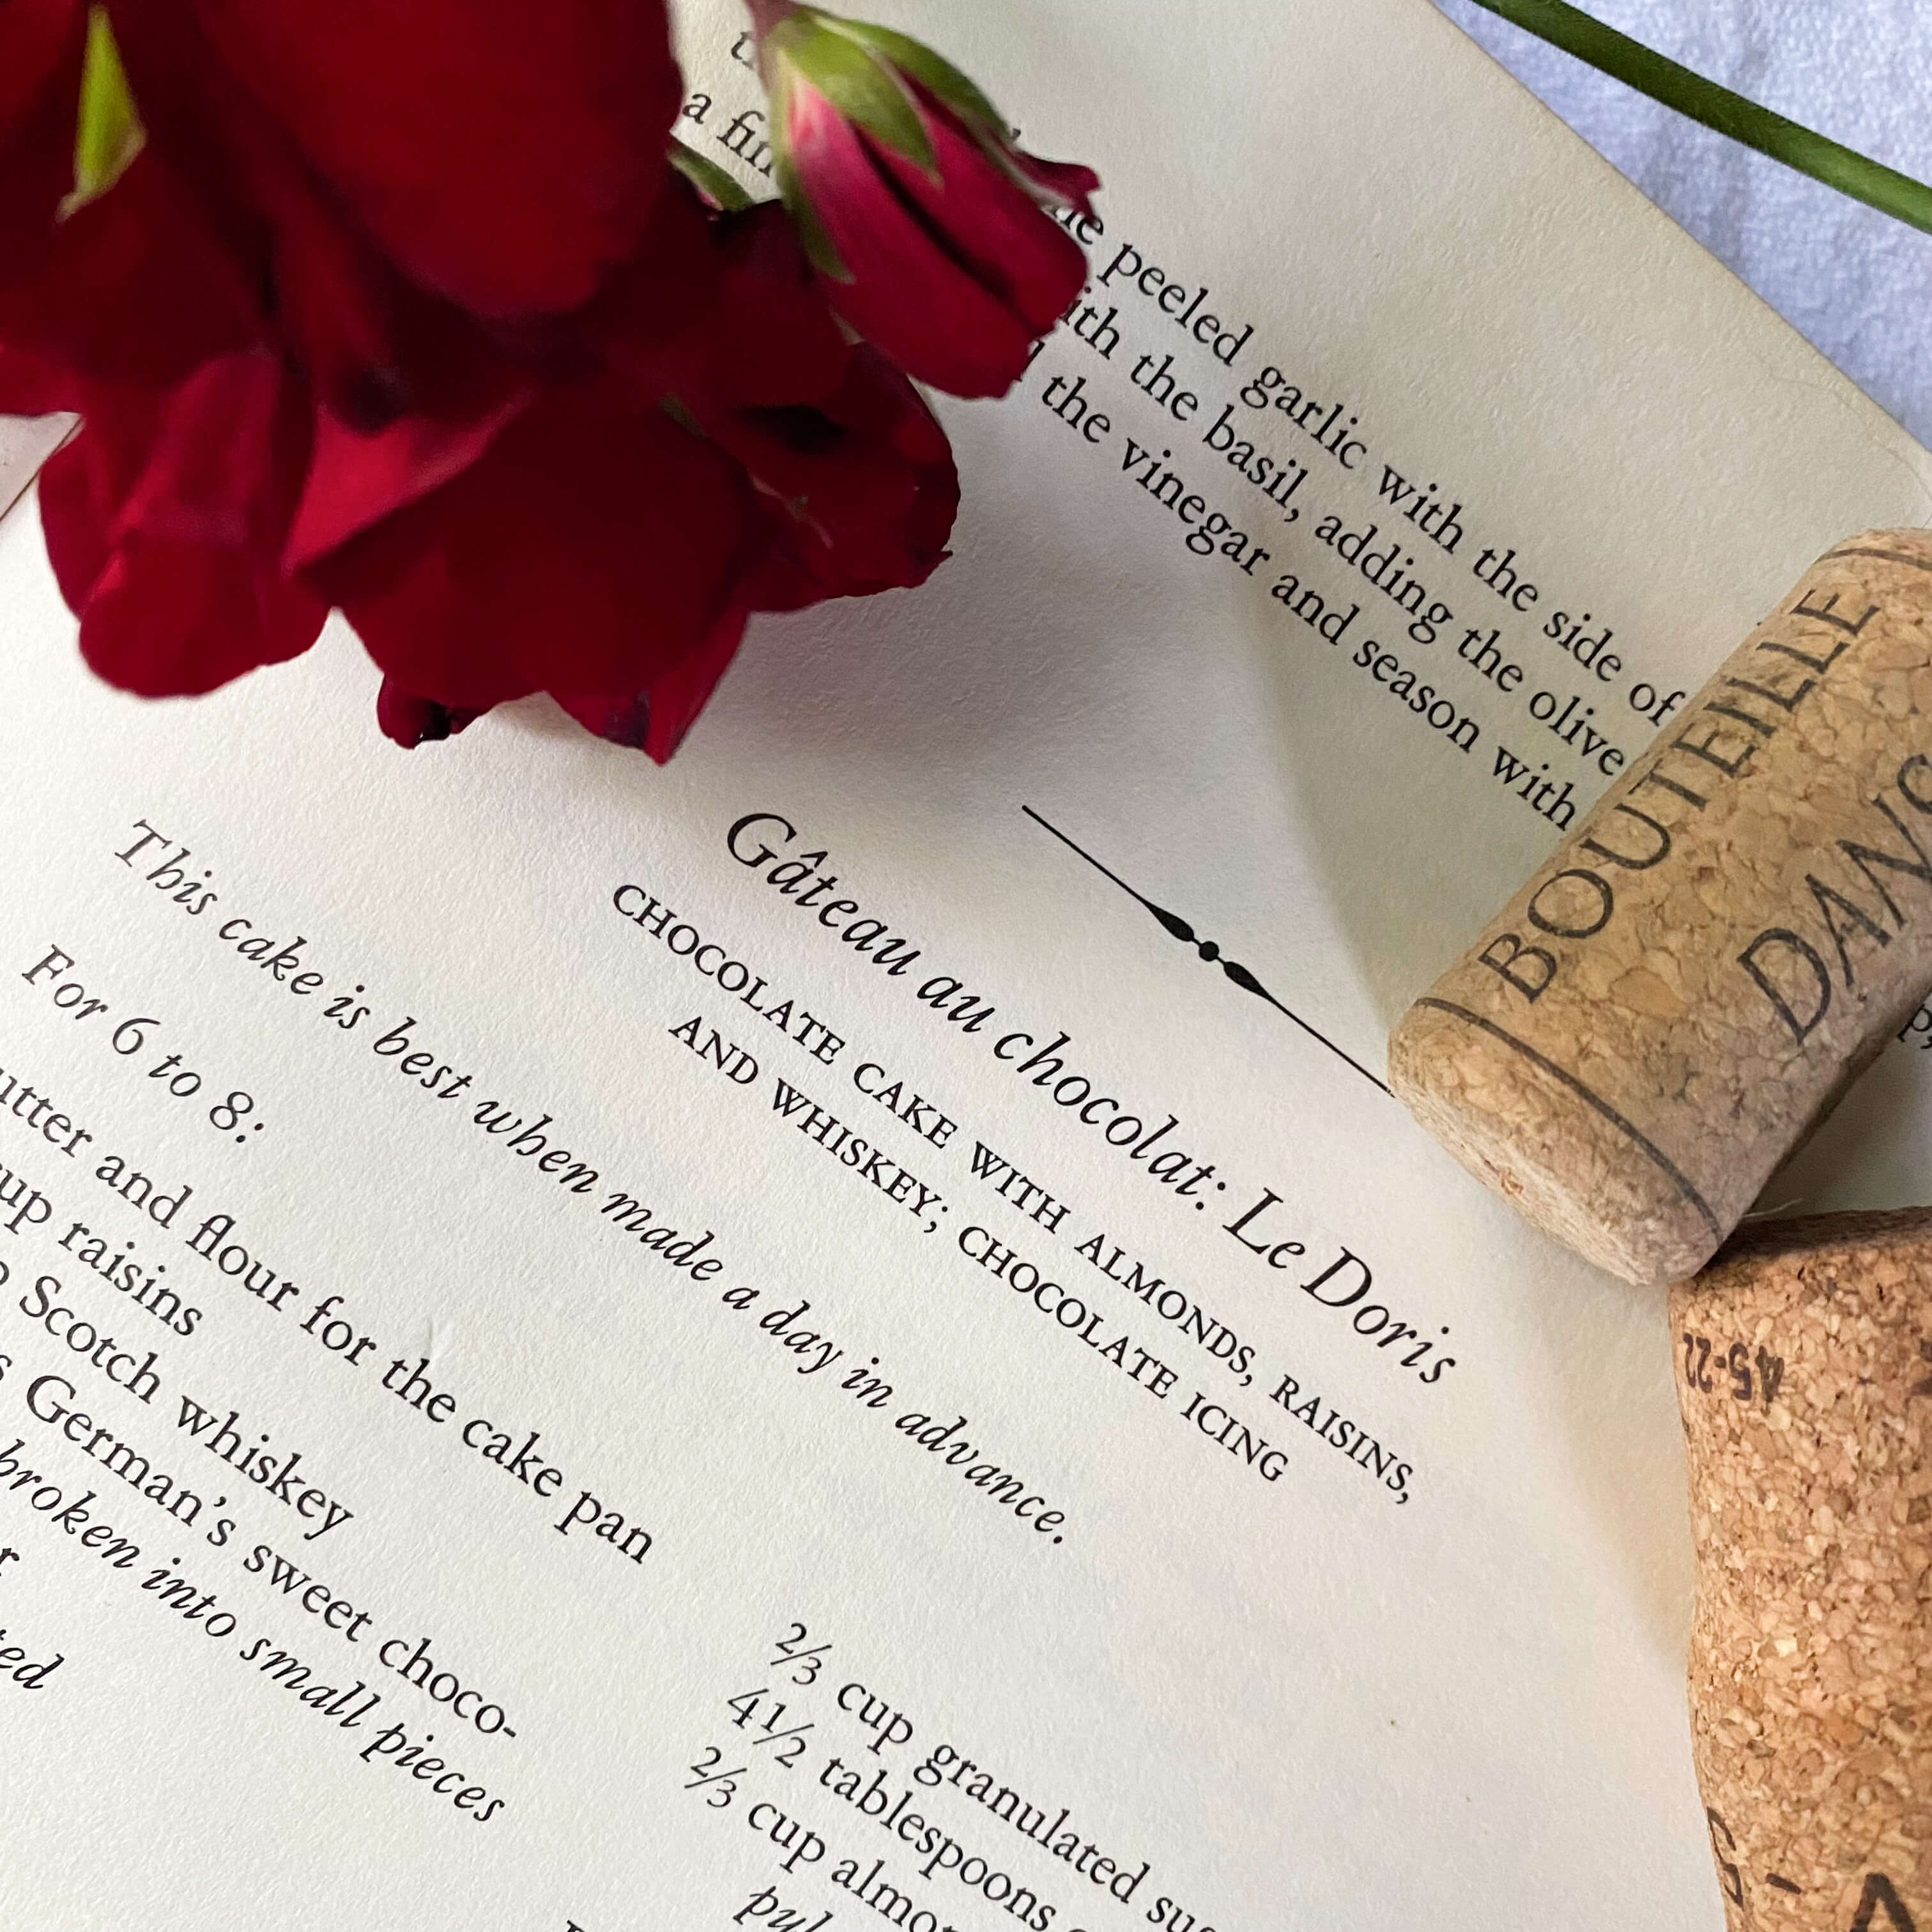 a
peeled garlic with the side of
the basil, adding the olive
the vinegar and season with
Gâteau au chocolat: Le Doris
CHOCOLATE CAKE WITH ALMONDS, RAISINS,
AND WHISKEY; CHOCOLATE ICING
This cake is best when made a day in advance.
For 6 to 8:
and flour for the cake pan
raisins
Scotch whiskey
German's sweet choco-
broken into small pieces
2/3 cup granulated
4 1/2 tablespoons
2/3 cup
BOUTEILLE
45-22